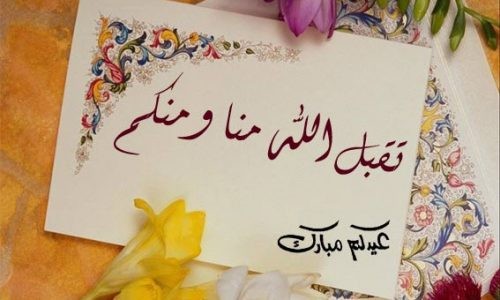 تقبل الله منا و منكم
عيدكم مبارك